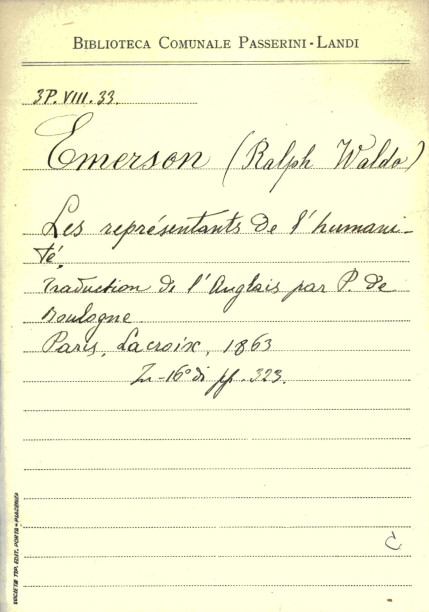 BIBLIOTECA COMUNALE PASSERINI-LANDI
3P.VIII.33.
Emerson (Ralph Waldo)
Les représentants de l'humani-
té.
Traduction de l'Anglais par P. de
Boulogne
Paris, Lacroix, 1863
In-16° di pp. 323.
C
SOCIETÀ TIP. EDIT. PORTA - PIACENZA